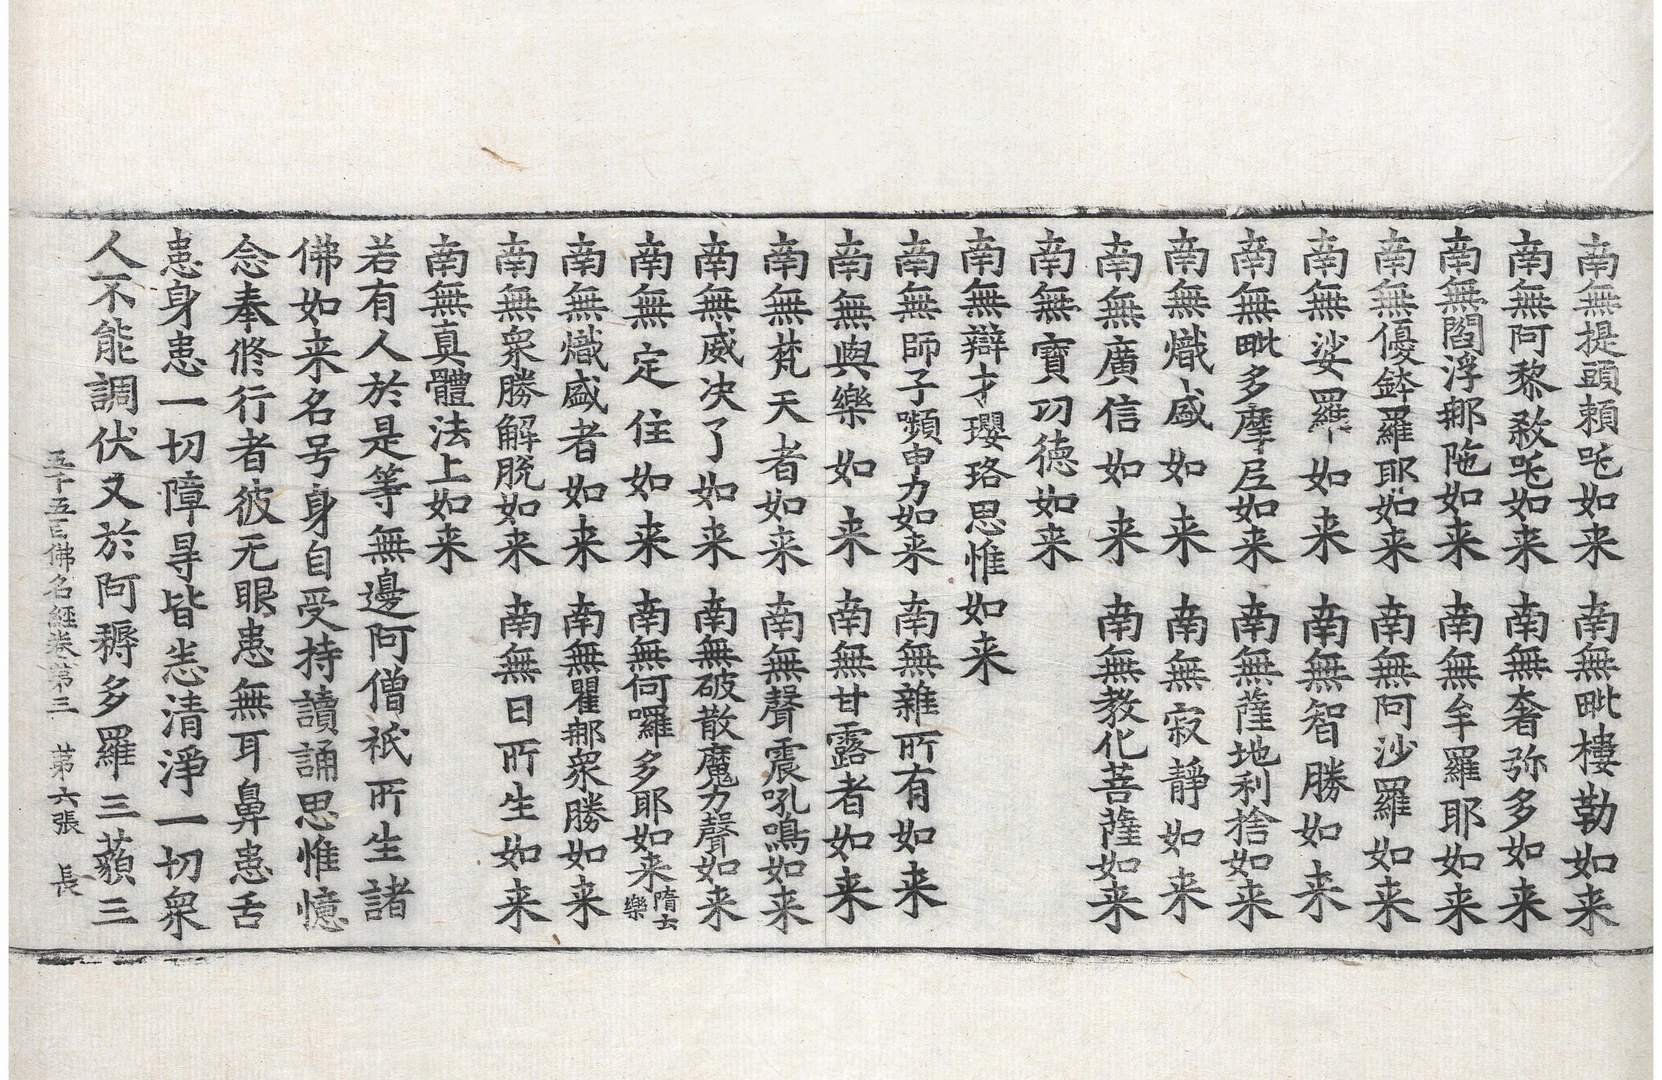 南無提頭賴吒如来　南無毗樓勒如来
南無阿黎敎吒如来　南無奢弥多如来
南無閻浮那陁如来　南無牟羅耶如来
南無優鉢羅耶如来　南無阿沙羅如来
南無娑羅如来　南無智勝如来
南無毗多摩尼如来　南無薩地利捨如来
南無熾盛如来　南無寂靜如来
南無廣信如来　南無教化菩薩如来
南無寶功徳如来
南無辯才瓔珞思惟如来
南無師子嚬申力如来　南無雜所有如来
南無與樂如来　南無甘露者如来
南無梵天者如来　南無聲震吼鳴如来
南無威决了如来　南無破散魔力聲如来
南無定住如来　南無何囉多耶如来隋去樂
南無熾盛者如来　南無瞿那衆勝如来
南無衆勝解脱如来　南無日所生如来
南無真體法上如来
若有人於是等無邊阿僧祇所生諸
佛如来名号身自受持讀誦思惟憶
念奉修行者彼无眼患無耳鼻患舌
患身患一切障㝵皆悉清淨一切衆
人不能調伏又於阿耨多羅三藐三
五千五百佛名經卷第三　第六張　長